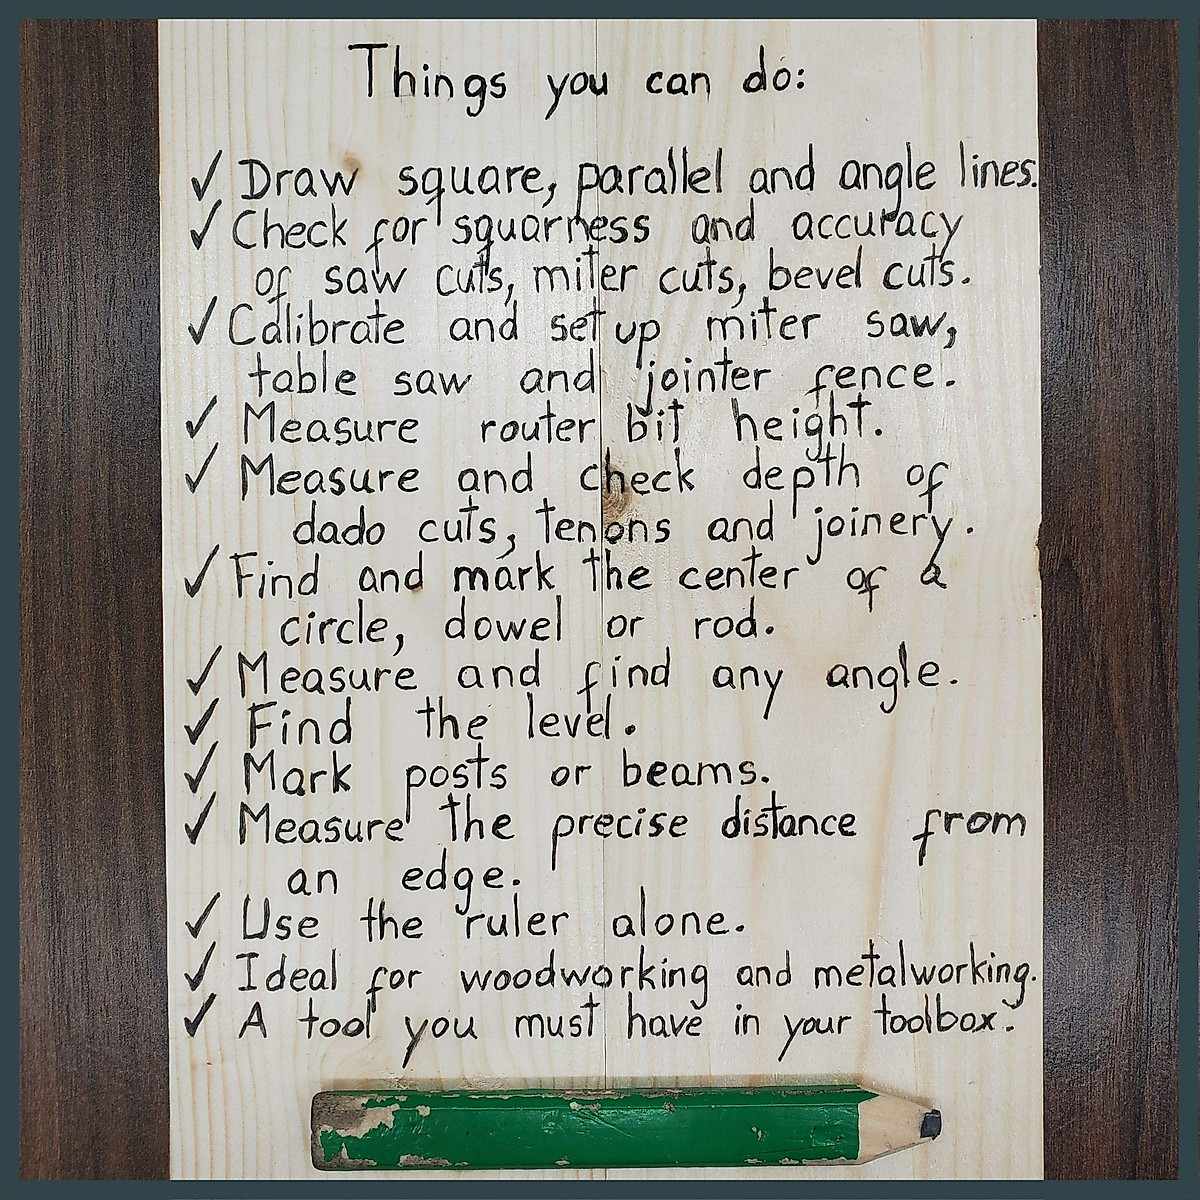 Things you can do:
✓ Draw square, parallel and angle lines.
✓ Check for squarness and accuracy
of saw cuts, miter cuts, bevel cuts.
✓ Calibrate and set up miter saw,
table saw and jointer fence.
✓ Measure router bit height.
✓ Measure and check depth of
dado cuts, tenons and joinery.
✓ Find and mark the center of a
circle, dowel or rod.
✓ Measure and find any angle.
✓ Find the level.
✓ Mark posts or beams.
✓ Measure the precise distance from
an edge.
✓ Use the ruler alone.
✓ Ideal for woodworking and metalworking.
✓ A tool you must have in your toolbox.